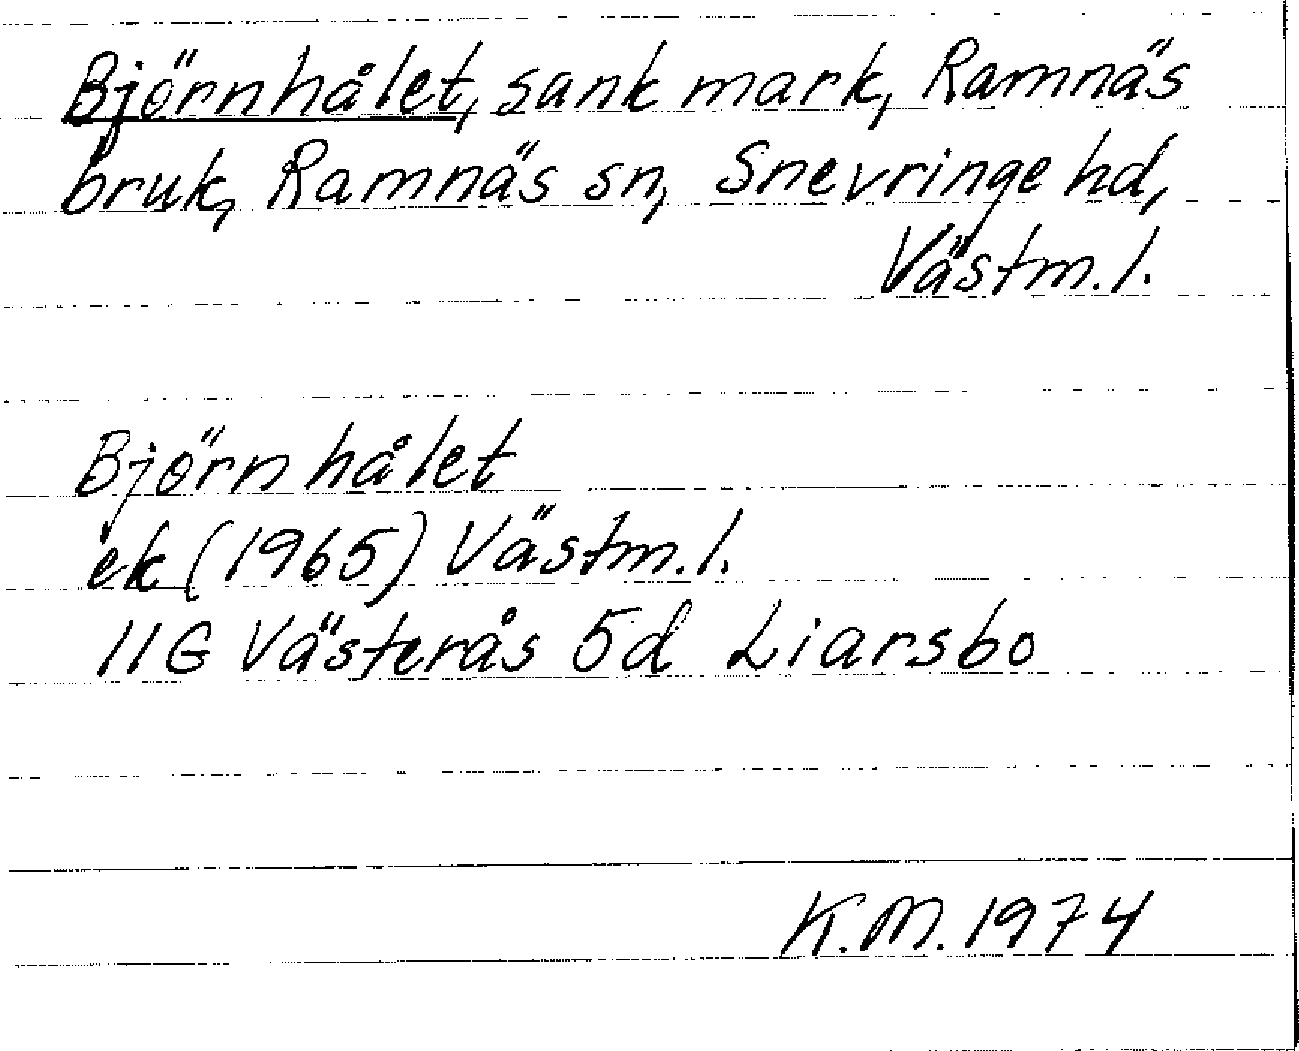 Björnhålet, sank mark, Ramnäs
bruk, Ramnäs sn, Snevringe hd,
Västm. l.
Björnhålet
ek (1965) Västm. l.
11G Västerås 5d Liarsbo
K.M. 1974